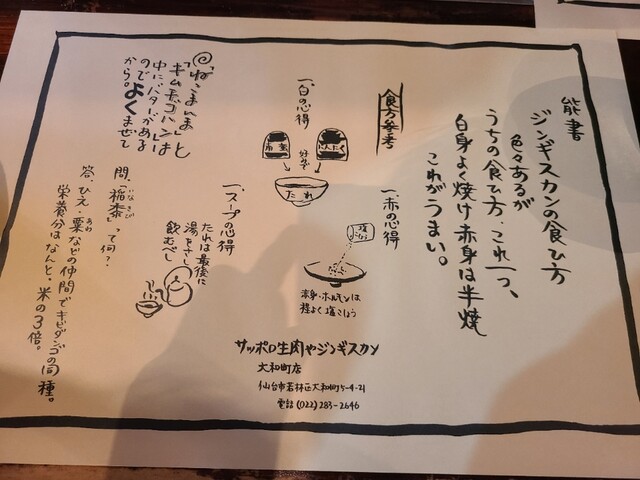 能書
ジンギスカンの食ひ方
色々あるが
うちの食ひ方、これ一つ、
白身よく焼け赤身は半焼
これがうまい。
食方参考
一、白の心得
南蛮
にんにく
好みで
たれ
一、赤の心得
赤身・ホルモンは
程よく塩こしょう
一、スープの心得
たれは最後に
湯をさし
飲むべし
◎「ねこまいぁ」と
「キムチッコハン」は
中にバターがある
ので
から。よくまぜて
問、「稲黍」って何?
いなきび
答、ひえ・粟などの仲間でキビダンゴの同種。
あわ
栄養分はなんと、米の3倍。
サッポロ生肉やジンギスカン
大和町店
仙台市若林区大和町5-4-21
電話(022)283-2646